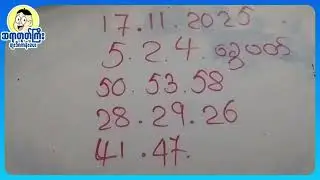 ဆရာတုတ်ကြီး
17.11.2025
5.2.4. ခွေပတ်
50.53.58
28.29.26
41.47.